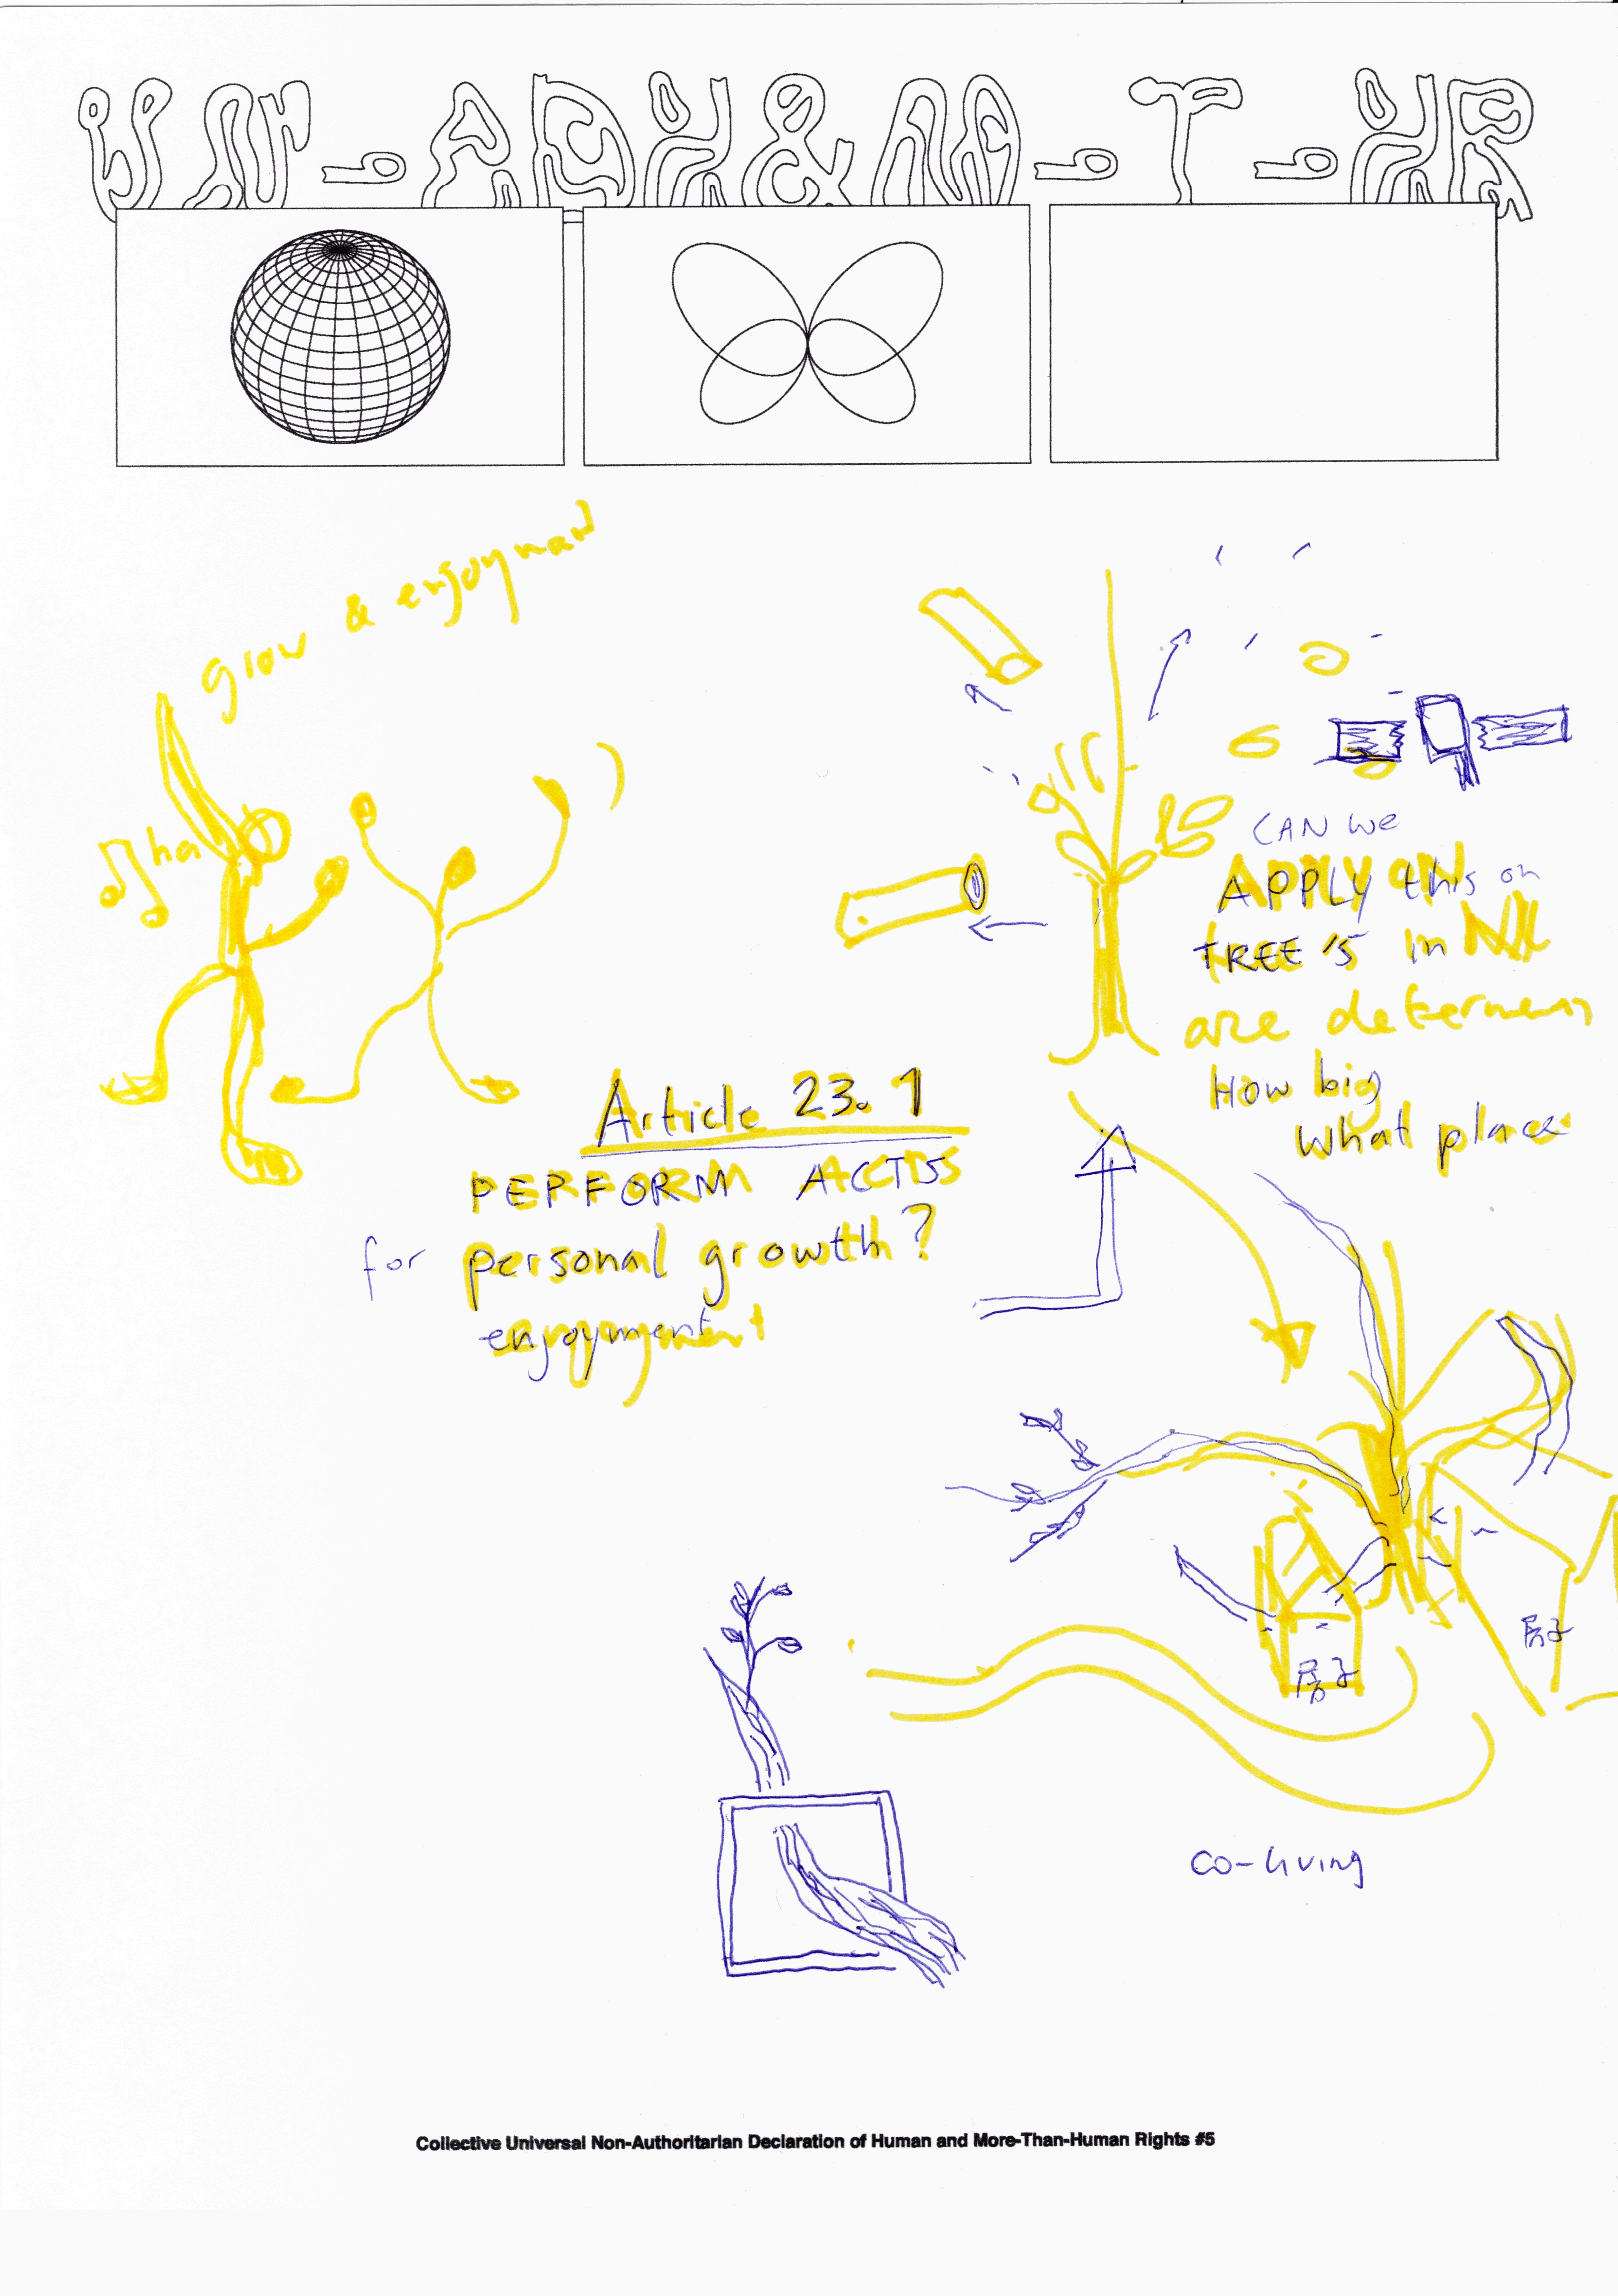 UN-ADH&M-T-HR
grow & enjoyman
ha
CAN we
APPLY this on
TREE'S in NL
are determen
How big
what place
Article 23.1
PERFORM ACTS
for personal growth?
enjoyment
房子
房子
co-living
Collective Universal Non-Authoritarian Declaration of Human and More-Than-Human Rights #5